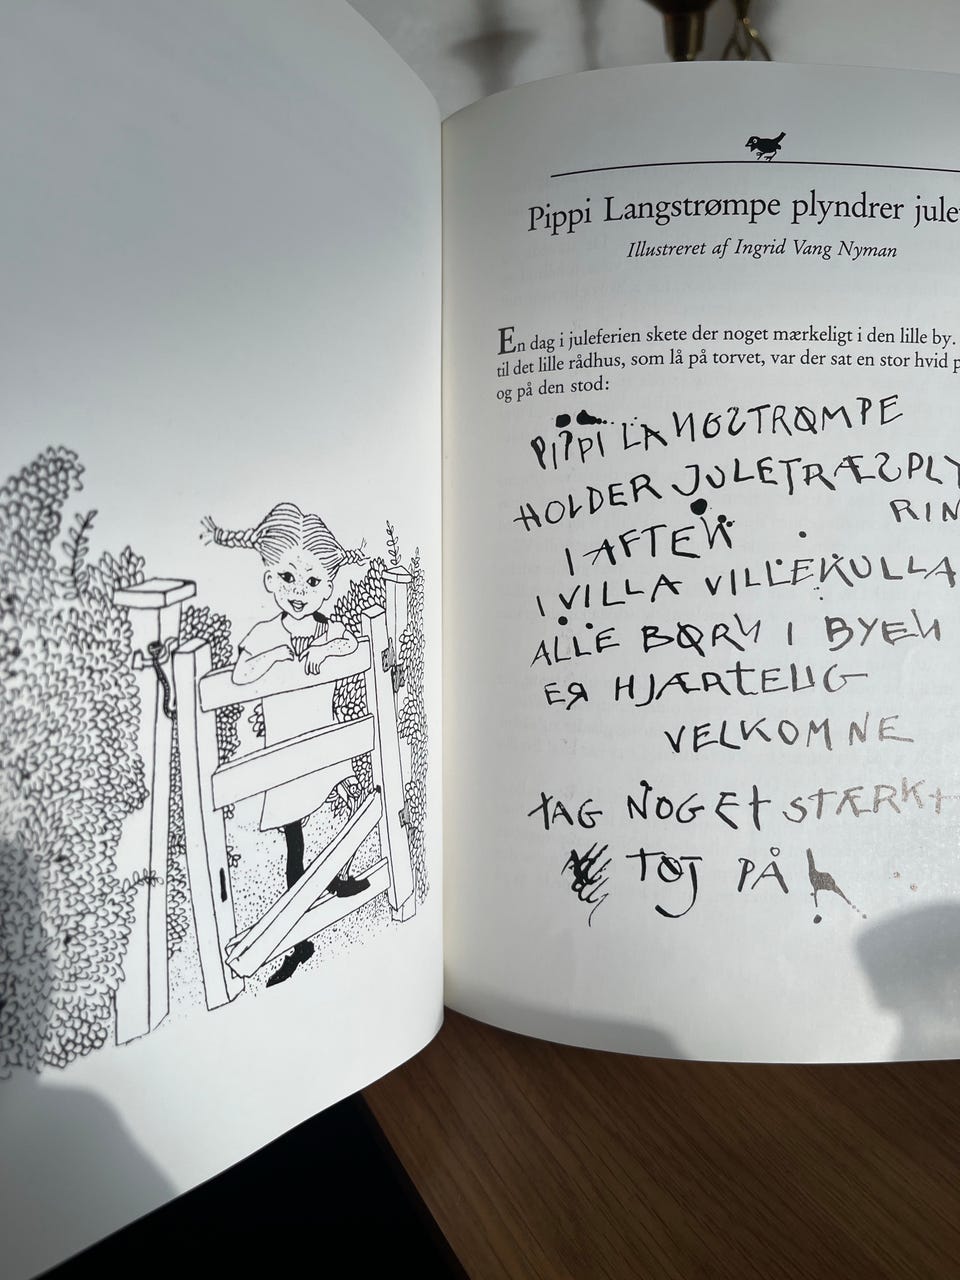 Pippi Langstrømpe plyndrer
Illustreret af Ingrid Vang Nyman
En dag i juleferien skete der noget mærkeligt i den lille by.
til det lille rådhus, som lå på torvet, var der sat en stor hvid
og på den stod:
PIPPI LANGSTRØMPE
HOLDER
I AFTEN
I VILLA VILLEKULLA
ALLE BØRN I BYEN
ER HJÆRTELIG
VELKOMNE
TAG NOGET STÆRKT
TØJ PÅ